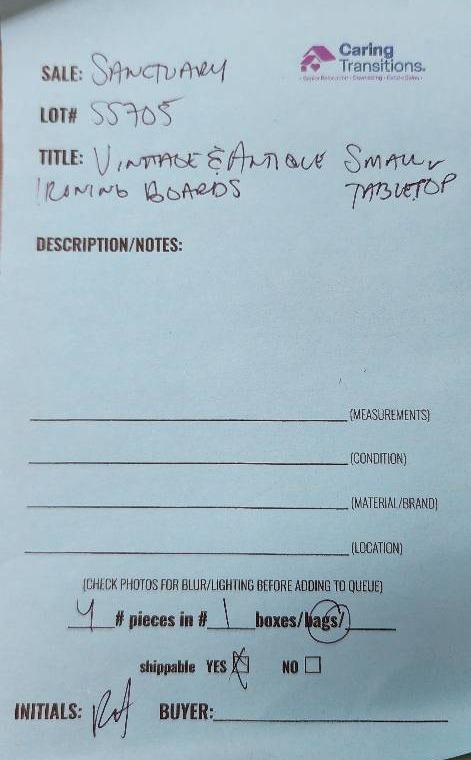 Caring
Transitions.
SALE: SANCTUARY
LOT# SS705
TITLE: VINTAGE & ANTIQUE SMALL,
IRONING BOARDS TABLETOP
DESCRIPTION/NOTES:
(MEASUREMENTS)
(CONDITION)
(MATERIAL/BRAND)
(LOCATION)
(CHECK PHOTOS FOR BLUR/LIGHTING BEFORE ADDING TO QUEUE)
4 # pieces in # 1 boxes/bags/
shippable YES NO
INITIALS: BUYER: